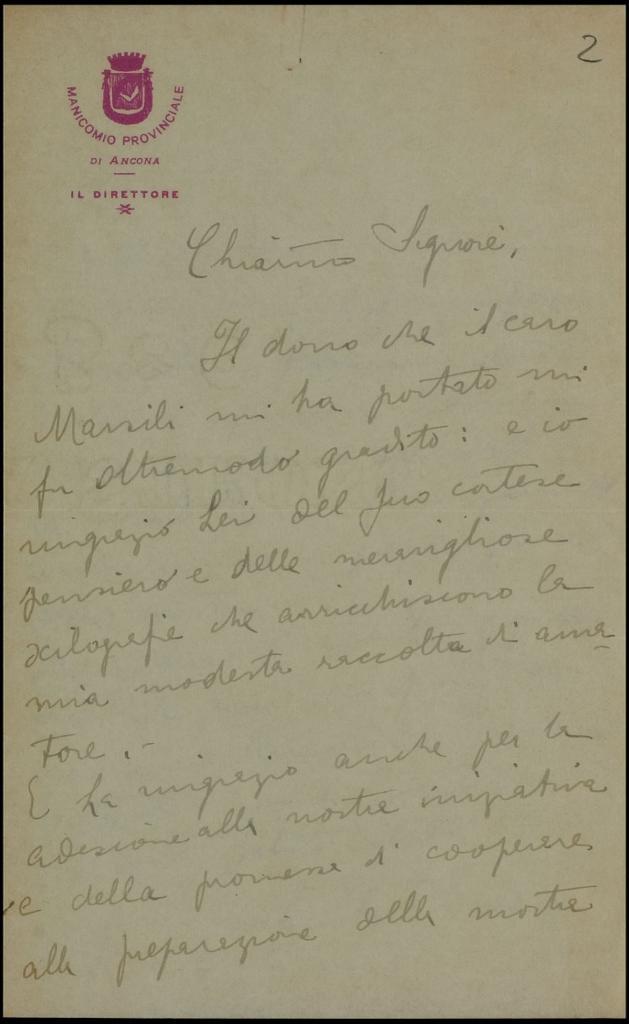 2
MANICOMIO PROVINCIALE
DI ANCONA
IL DIRETTORE
Chiarmo Signore,
Il dono che il caro
Marsili mi ha portato mi
fu oltremodo gradito: e io
ringrazio Lei del Suo cortese
pensiero e delle meravigliose
xilografie che arricchiscono la
mia modesta raccolta di ama-
tore.-
E La ringrazio anche per la
adesione alla nostra iniziativa
e della promessa di cooperare
alla preparazione della mostra